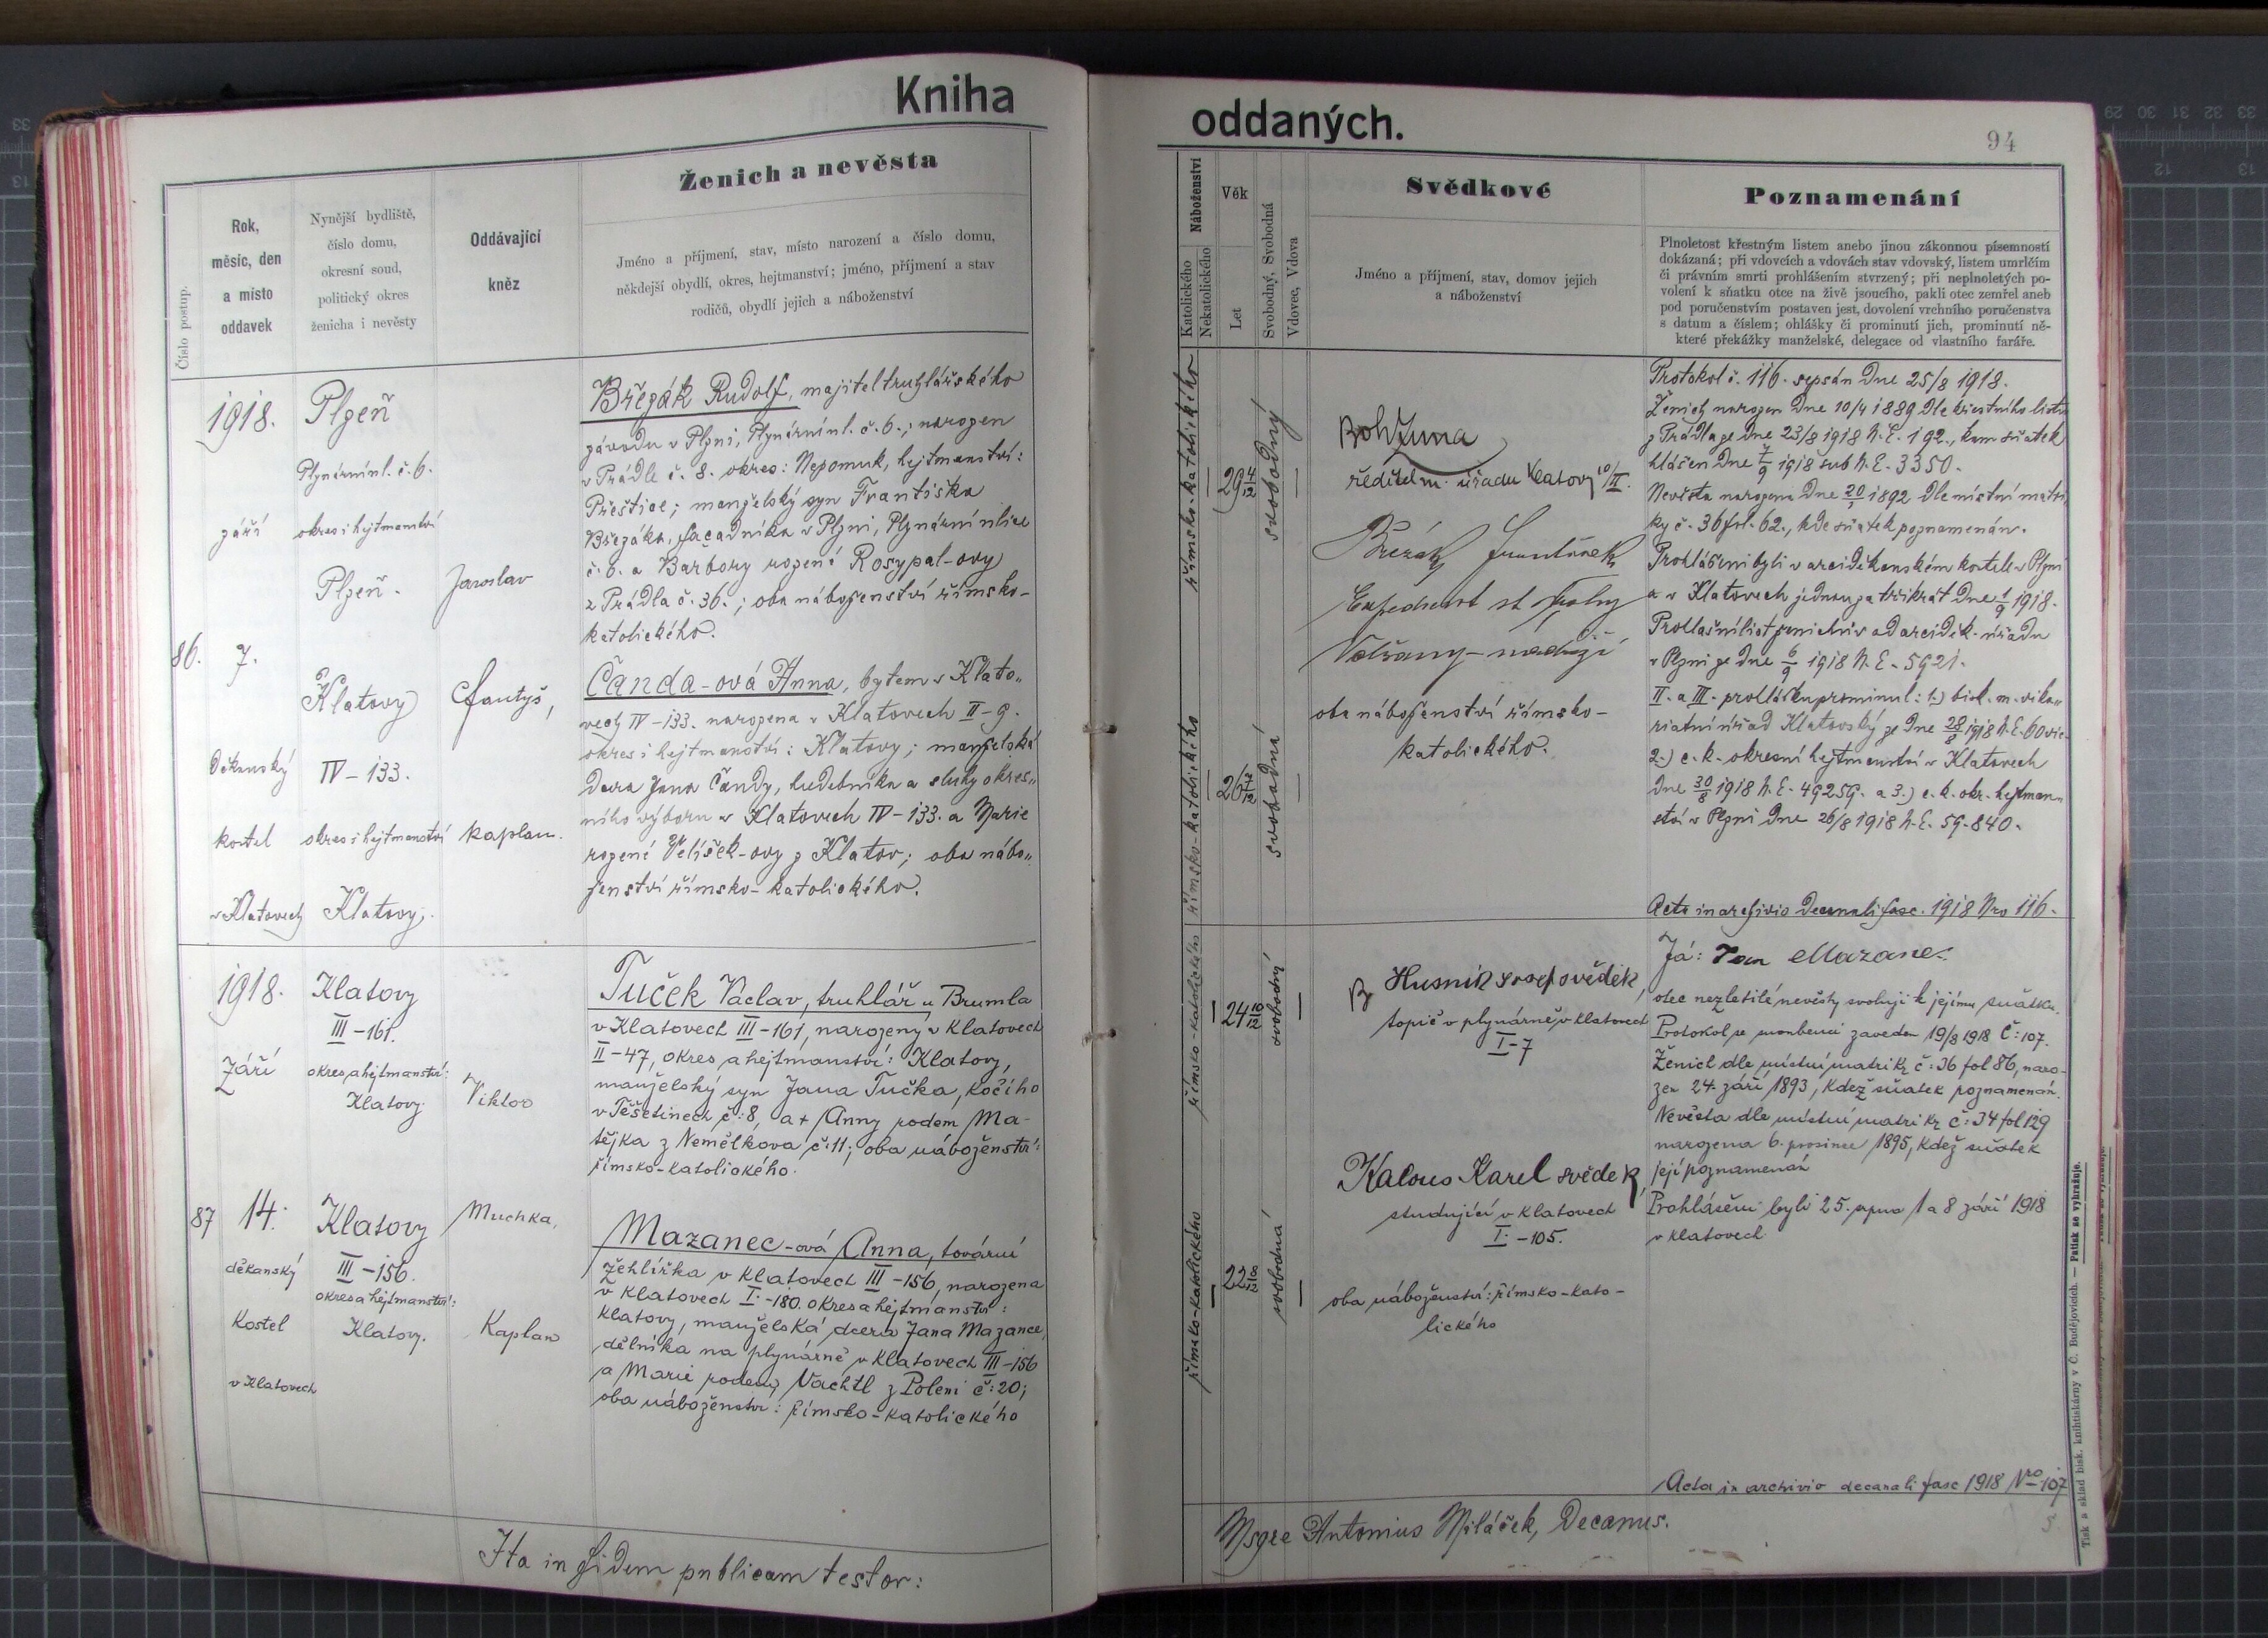 Kniha
oddaných.
94
Číslo postup.
Rok,
měsíc, den
a místo
oddavek
Nynější bydliště,
číslo domu,
okresní soud,
politický okres
ženicha i nevěsty
Oddávající
kněz
Ženich a nevěsta
Jméno a příjmení, stav, místo narození a číslo domu,
někdejší obydlí, okres, hejtmanství; jméno, příjmení a stav
rodičů, obydlí jejich a náboženství
Náboženství
Katolického
Nekatolického
Věk
Let
Svobodný, Svobodná
Vdovec, Vdova
Svědkové
Jméno a příjmení, stav, domov jejich
a náboženství
Poznamenání
Plnoletost křestným listem anebo jinou zákonnou písemností
dokázaná; při vdovcích a vdovách stav vdovský, listem umrlčím
či právním smrti prohlášením stvrzený; při neplnoletých po-
volení k sňatku otce na živě jsoucího, pakli otec zemřel aneb
pod poručenstvím postaven jest, dovolení vrchního poručenstva
s datum a číslem; ohlášky či prominutí jich, prominutí ně-
které překážky manželské, delegace od vlastního faráře.
86.
1918.
září
7.
Děkanský
kostel
v Klatovech
Plzeň
Plynární ul. č. 6.
okres i hejtmanství
Plzeň.
Klatovy
IV-133.
okres i hejtmanství
Klatovy.
Jaroslav
kaplan.
Březák Rudolf, majitel truhlářského
závodu v Plzni, Plynární ul. č. 6.; narozen
v Prádle č. 8. okres: Nepomuk, hejtmanství:
Přeštice; manželský syn Františka
Březáka, fasadníka v Plzni, Plynární ulice
č. 6. a Barbory rozené Rosypal-ovy
z Prádla č. 36.; oba náboženství římsko-
katolického.
Čanda-ová Anna, bytem v Klato„
vech IV-133. narozena v Klatovech II-9.
okres i hejtmanství: Klatovy; manželská
dcera Jana Čandy, hudebníka a sluhy okres„
ního výboru v Klatovech IV-133. a Marie
rozené Velíšek-ovy z Klatov; oba nábo„
ženství římsko-katolického.
římsko-katolického
29 4/12
svobodný
římsko-katolického
26
svobodná
ředitel m. úřadu Klatovy
Březák František
Volšany-nádraží
oba náboženství římsko-
katolického.
Protokol č. 116. sepsán dne 25/8 1918.
Ženich narozen dne 10/4 1889 dle křestního listu
z Prádla ze dne 23/8 1918 N. E. 192., kam sňatek
hlášen dne 7/9 1918 sub N. E. 3350.
Nevěsta narozena dne 1892 dle místní matri„
ky č. 36 fol. 62., kde sňatek poznamenán.
Prohlášeni byli v arciděkanském kostele v Plzni
a v Klatovech jednou za třikrát dne 1/9 1918.
Prohlašní list ženichův od arciděk. úřadu
v Plzni ze dne 6/9 1918 N. E. 5921.
II. a III. prohlášku prominul: 1.) bisk. m. vika„
riatní úřad Klatovský ze dne 28/8 1918 N. E. 60 vic.
2.) c. k. okresní hejtmanství v Klatovech
dne 30/8 1918 N. E. 49259. a 3.) c. k. okr. hejtman„
ství v Plzni dne 26/8 1918 N. E. 59.840.
Acta in archivio decanali fasc. 1918 Nro 116.
87
1918.
Září
14.
děkanský
Kostel
v Klatovech
Klatovy
III-161.
okres a hejtmanství:
Klatovy
Klatovy
III-156.
okres a hejtmanství:
Klatovy.
Viktor
Muchka,
Kaplan
Tuček Václav, truhlář u Brumla
v Klatovech III-161, narozený v Klatovech
II-47, okres a hejtmanství: Klatovy,
manželský syn Jana Tučka, kočího
v Těšetinech č: 8, a + Anny rodem Ma-
tějka z Nemělkova č: 11; oba náboženství:
římsko-katolického.
Mazanec-ová Anna, tovární
žehlířka v Klatovech III-156, narozena
v Klatovech I.-180. okres a hejtmanství:
Klatovy, manželská dcera Jana Mazance,
dělníka na plynárně v Klatovech III-156
a Marie rodem Vachtl z Poleni č: 20;
oba náboženství: římsko-katolického
římsko-katolického
24 10/12
svobodný
římsko-katolického
22
svobodná
Husník Josef svědek,
topič v plynárně v Klatovech
I-7
Kalous Karel svědek,
studující v Klatovech
I.-105.
oba náboženství: římsko-kato-
lického
Já: Jan Mazanec
otec nezletilé nevěsty svoluji k jejímu sňatku.
Protokol se snoubenci zaveden 19/8 1918 Č: 107.
Ženich dle místní matriky č: 36 fol 86, naro-
zen 24. září 1893, kdež sňatek poznamenán.
Nevěsta dle místní matriky č: 34 fol 129
narozena 6. prosince 1895, kdež sňatek
její poznamenán
Prohlášeni byli 25. srpna 1 a 8 září 1918
v Klatovech
Acta in archivio decanali fasc 1918 Nro 107
Ita in fidem publicam testor:
Msgre Antonius Miláček, Decanus.
Tisk a sklad bisk. knihtiskárny v Č. Budějovicích. — Patisk se vyhražuje.